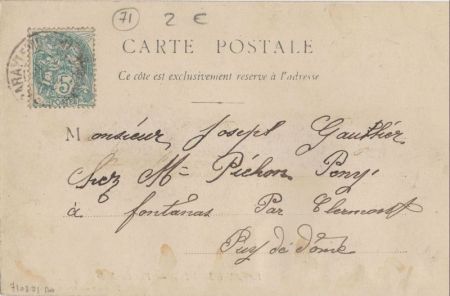 71 2 €
CARTE POSTALE
Ce côté est exclusivement réservé à l'adresse
5
Monsieur Joseph Gauthier
Chez Mr Pichon Pony
à fontanas Par Clermont
Puy de dôme